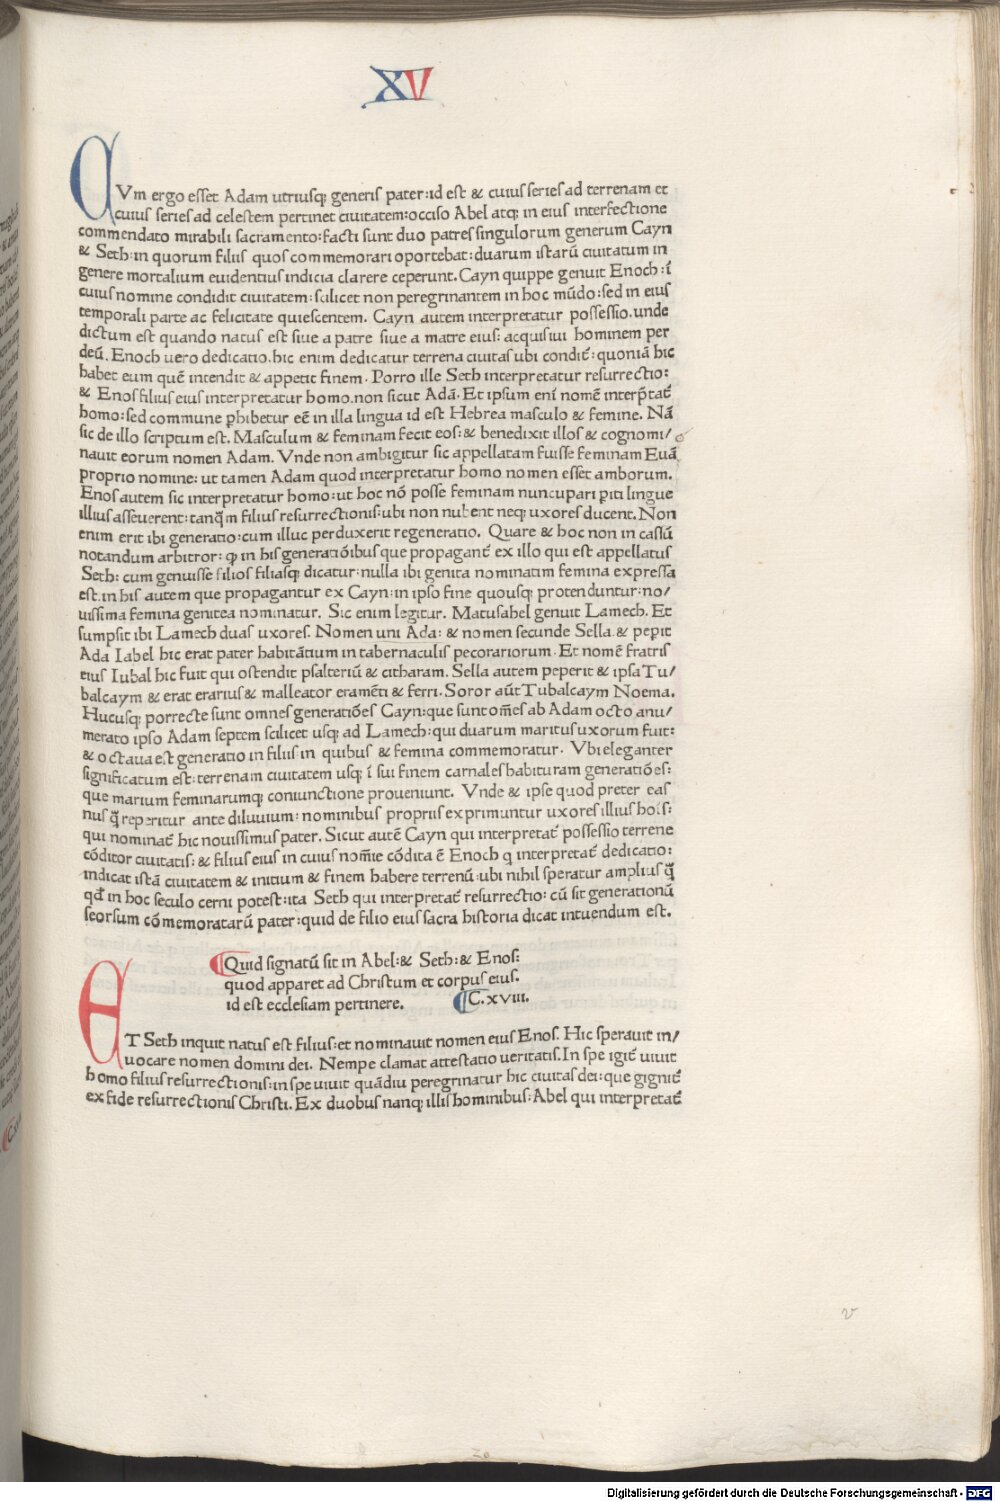 XV
CVm ergo esset Adam utriusq; generis pater: id est & cuius series ad terrenam et
cuius series ad celestem pertinet ciuitatem: occiso Abel atq; in eius interfectione
commendato mirabili sacramento: facti sunt duo patres singulorum generum Cayn
& Seth: in quorum filiis quos commemorari oportebat: duarum istarū ciuitatum in
genere mortalium euidentius indicia clarere ceperunt. Cayn quippe genuit Enoch: ī
cuius nomine condidit ciuitatem: scilicet non peregrinantem in hoc mūdo: sed in eius
temporali parte ac felicitate quiescentem. Cayn autem interpretatur possessio. unde
dictum est quando natus est siue a patre siue a matre eius: acquisiui hominem per
deū. Enoch uero dedicatio. hic enim dedicatur terrena ciuitas ubi condit᷑: quoniā hic
habet eum quē intendit & appetit finem. Porro ille Seth interpretatur resurrectio:
& Enos filius eius interpretatur homo. non sicut Adā. Et ipsum eni᷑ nomē interp̄tat᷑
homo: sed commune ꝑhibetur eē in illa lingua id est Hebrea masculo & femine. Nā
sic de illo scriptum est. Masculum & feminam fecit eos: & benedixit illos & cognomi/
nauit eorum nomen Adam. Vnde non ambigitur sic appellatam fuisse feminam Euā
proprio nomine: ut tamen Adam quod interpretatur homo nomen esset amborum.
Enos autem sic interpretatur homo: ut hoc nō posse feminam nuncupari ꝑiti lingue
illius asseuerent: tanq̄m filius resurrectionis: ubi non nubent neq; uxores ducent. Non
enim erit ibi generatio: cum illuc perduxerit regeneratio. Quare & hoc non in cassū
notandum arbitror: ꝙ in his generatiōibus que propagant᷑ ex illo qui est appellatus
Seth: cum genuisse filios filiasq; dicatur: nulla ibi genita nominatim femina expressa
est. in his autem que propagantur ex Cayn: in ipso fine quousq; protenduntur: no/
uissima femina genitea nominatur. Sic enim legitur. Matusahel genuit Lamech. Et
sumpsit ibi Lamech duas uxores. Nomen uni Ada: & nomen secunde Sella. & pepit
Ada Iabel hic erat pater habitātium in tabernaculis pecorariorum. Et nomē fratris
eius Iubal hic fuit qui ostendit psalteriū & citharam. Sella autem peperit & ipsa Tu/
balcaym & erat erarius & malleator eramēti & ferri. Soror aūt Tubalcaym Noema.
Hucusq; porrecte sunt omnes generatiōes Cayn: que sunt om̄es ab Adam octo anu/
merato ipso Adam septem scilicet usq; ad Lamech: qui duarum maritus uxorum fuit:
& octaua est generatio in filiis: in quibus & femina commemoratur. Vbi eleganter
significatum est: terrenam ciuitatem usq; ī sui finem carnales habituram generatiōes:
que marium feminarumq; coniunctione proueniunt. Vnde & ipse quod preter eas
nusq̄ reperitur ante diluuium: nominibus propriis exprimuntur uxores illius hois:
qui nominat᷑ hic nouissimus pater. Sicut autē Cayn qui interpretat᷑ possessio terrene
cōditor ciuitatis: & filius eius in cuius nom̄ie cōdita ē Enoch q interpretat᷑ dedicatio:
indicat istā ciuitatem & initium & finem habere terrenū: ubi nihil speratur amplius q̄
qd̄ in hoc seculo cerni potest: ita Seth qui interpretat᷑ resurrectio: cū sit generationū
seorsum cōmemoratarū pater: quid de filio eius sacra historia dicat intuendum est.
¶Quid signatū sit in Abel: & Seth: & Enos:
quod apparet ad Christum et corpus eius.
id est ecclesiam pertinere. ¶C. xviii.
ET Seth inquit natus est filius: et nominauit nomen eius Enos. Hic sperauit in/
uocare nomen domini dei. Nempe clamat attestatio ueritatis. In spe igit᷑ uiuit
homo filius resurrectionis: in spe uiuit quādiu peregrinatur hic ciuitas dei: que gignit᷑
ex fide resurrectionis Christi. Ex duobus nanq; illis hominibus: Abel qui interpretat᷑
v
20
Digitalisierung gefördert durch die Deutsche Forschungsgemeinschaft - DFG